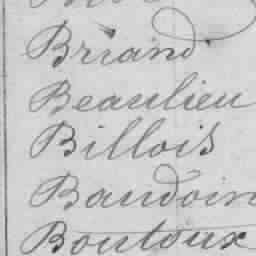 Briand
Beaulieu
Billois
Baudoin
Boutoux